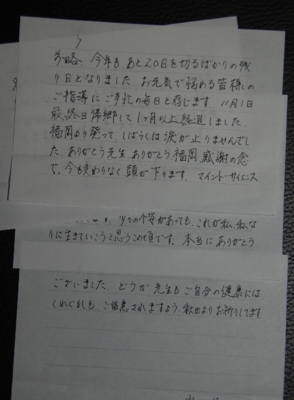 前略 今年も、あと20日を切るばかりの残
り日となりました。お元気で悩める皆様の
ご指導にご多忙の毎日と存じます。11月1日
最終日帰郷して1ヶ月以上経過しました。
福岡より発って、しばらくは涙が止りませんでし
た。ありがとう先生、ありがとう福岡、感謝の念
で、今も変わりなく頭が下ります。マインド・サイエンス
があっても、これが私、私な
りに生きていこうと思うこの頃です。本当にありがとう
ございました。どうか先生もご自分の健康には
くれぐれも、ご留意されますよう、秋田よりお祈りしてます